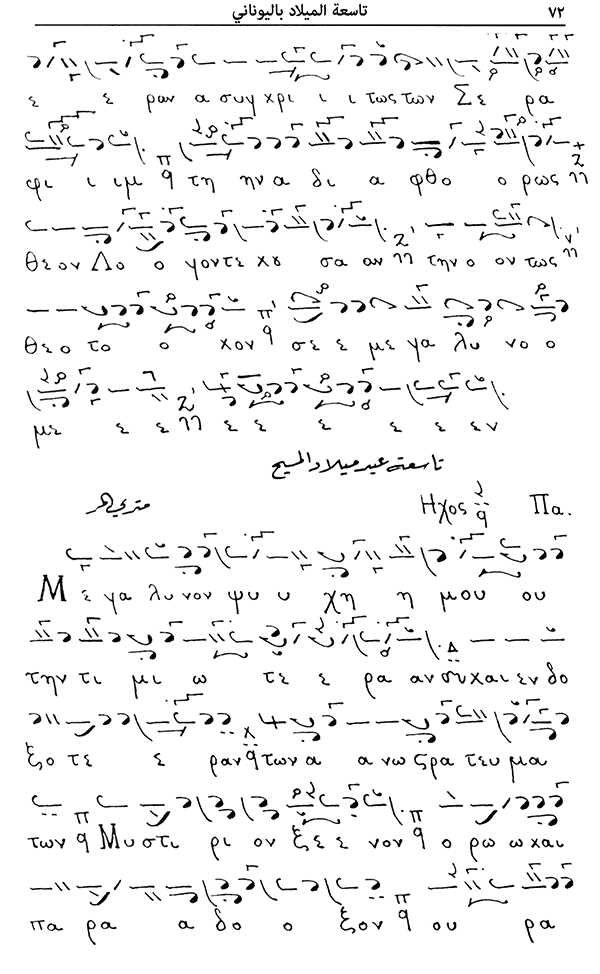 ٧٢ تاسعة الميلاد باليوناني
ε ε ραν α συγ χρι ι ι τως των Σε ρα
φι ι ιμ τη ην α δι α φθο ο ρως
θε ον Λο ο γον τε κου σα αν την ο ον τως
θε ο το ο κον σε ε με γα λυ νο ο
με ε ε ε ε ε ε ε εν
تاسعة عيد ميلاد المسيح
Ηχος Πα.
Μ ε γα λυ νον ψυ υ χη η μου ου
την τι μι ω τε ε ρα αν συ και εν δο
ξο τε ε ραν των α α νω στρα τευ μα
των Μυ στι ρι ον ξε ε νον ο ρω ω και
πα ρα α δο ο ξον ου ρα